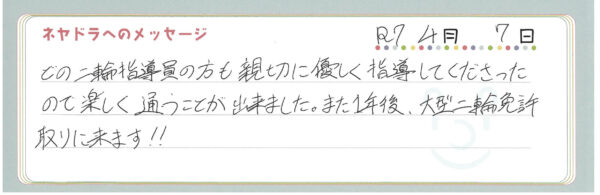 ネヤドラへのメッセージ
R7 4月 7日
どの二輪指導員の方も親切に優しく指導してくださった
ので楽しく通うことが出来ました。また1年後、大型二輪免許
取りに来ます!!